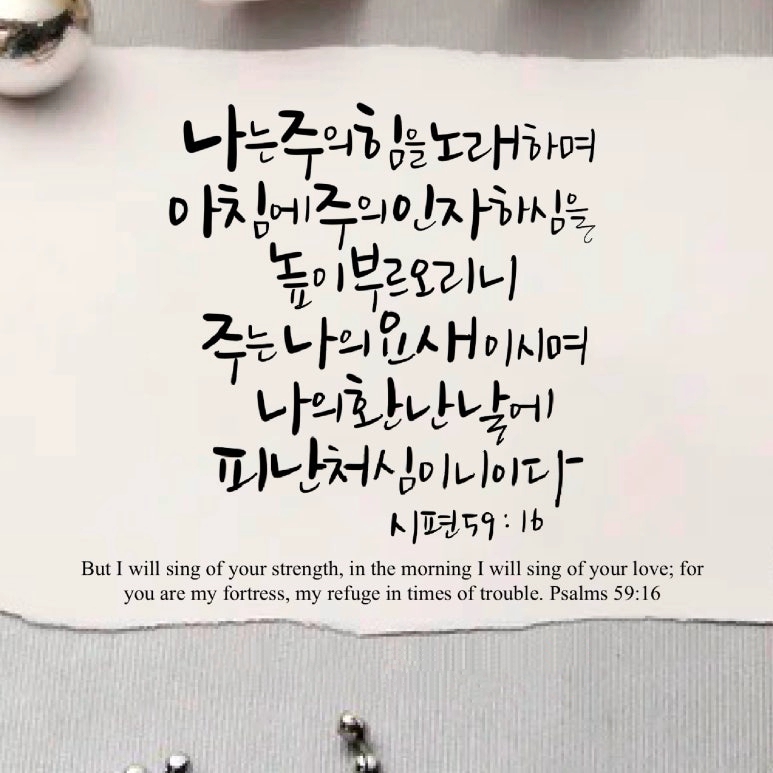 나는 주의 힘을 노래하며
아침에 주의 인자하심을
높이 부르오리니
주는 나의 요새이시며
나의 환난 날에
피난처심이니이다
시편 59:16
But I will sing of your strength, in the morning I will sing of your love; for
you are my fortress, my refuge in times of trouble. Psalms 59:16